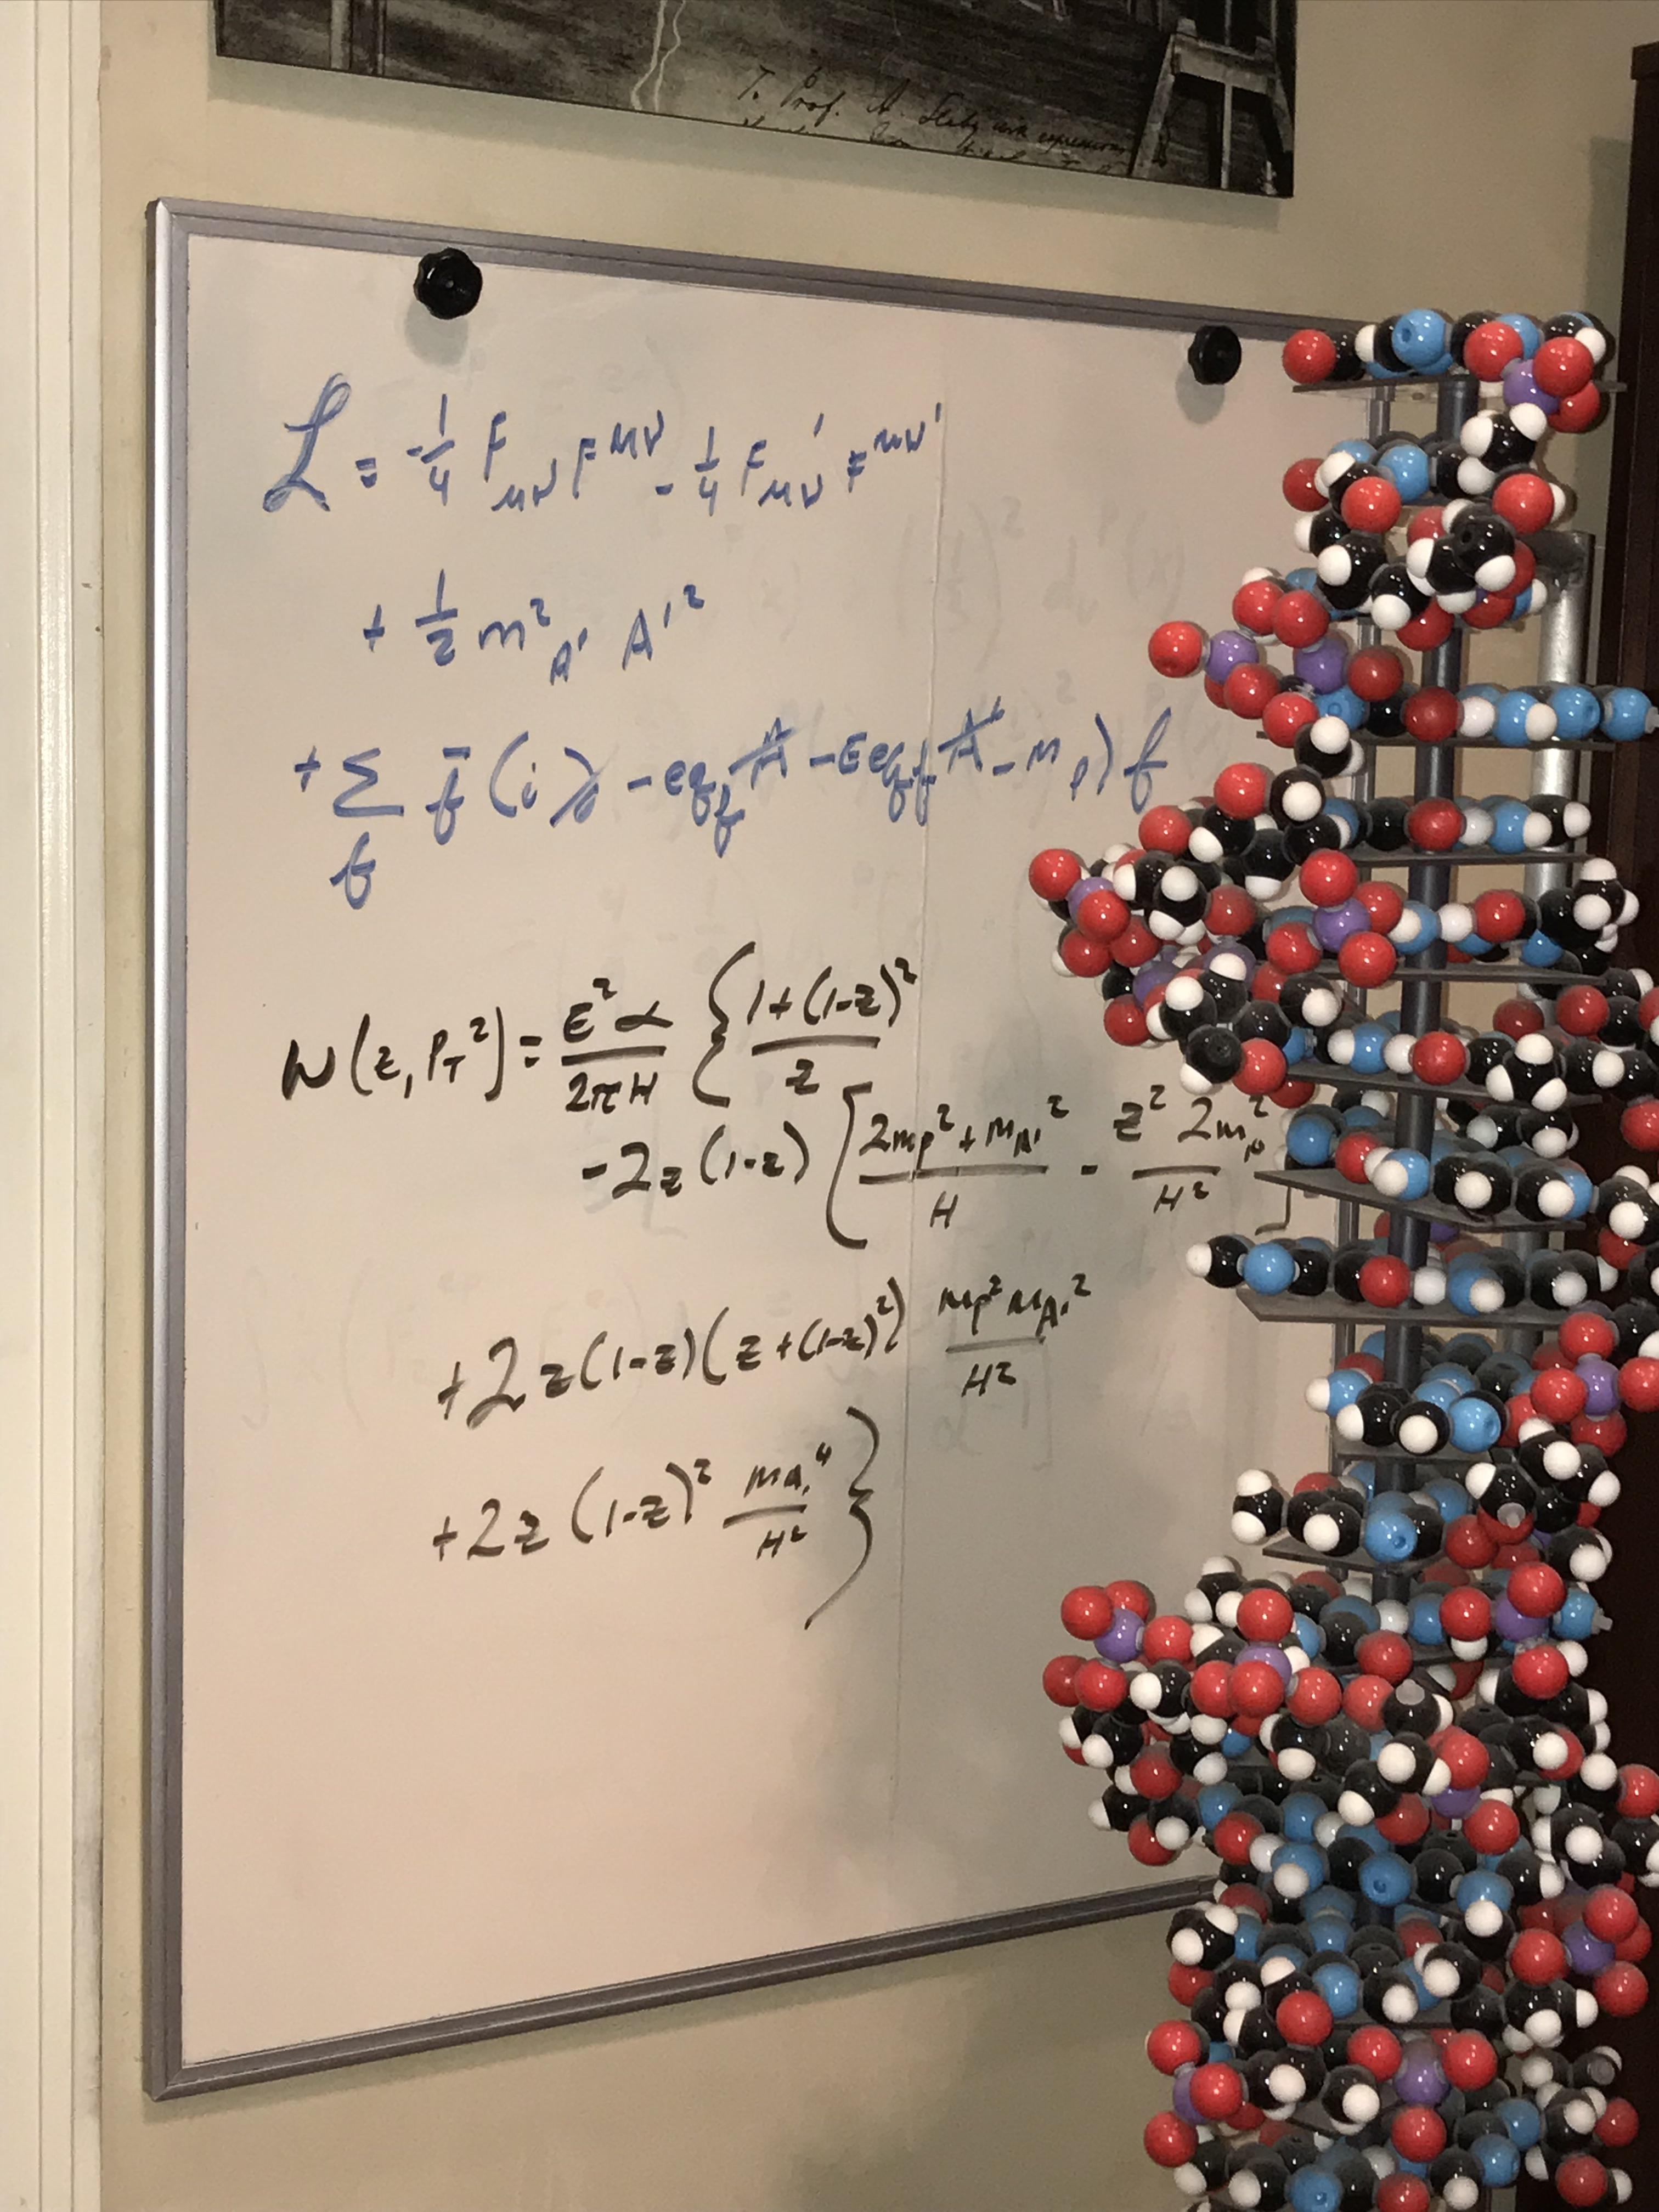 To Prof. A. Slaby
ℒ = -1/4 F_μν F^μν - 1/4 F_μν' F^μν'
+ 1/2 m²_A' A'²
+ Σ_f f̄ (i∂̸ - eq_f A̸ - εeq_f A̸' - m_p) f
w(z, P_T²) = ε²α/2πH { 1+(1-z)²/z
-2z(1-z) [ 2m_p²+m_A'²/H - z² 2m_p²/H² ]
+2z(1-z)(z+(1-z)²) m_p²m_A'²/H²
+2z(1-z)² m_A'⁴/H² }